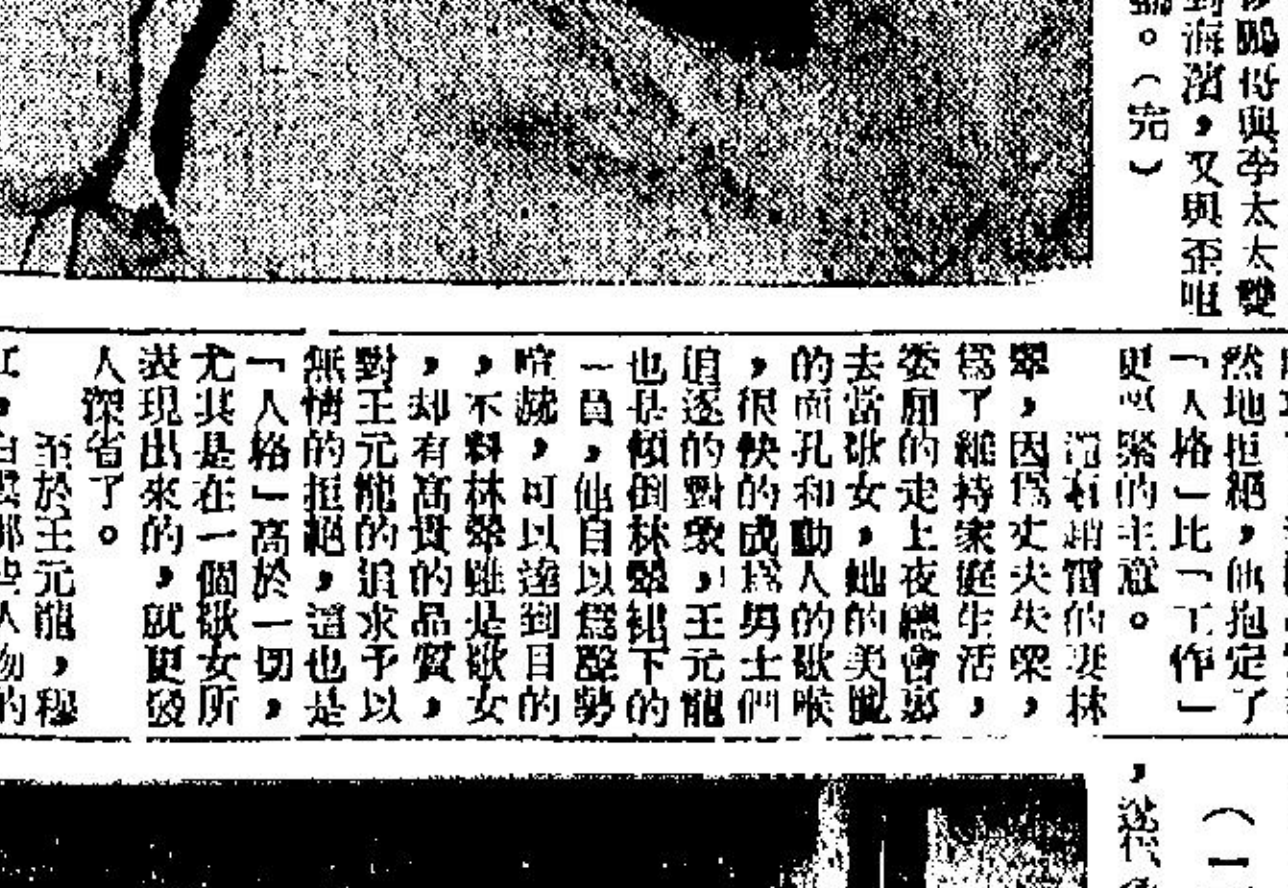 得與李太太雙
到海濱,又與歪咀
。(完)
然地拒絕,他抱定了
「人格」比「工作」
更要緊的主意。
趙雷的妻林
翠,因爲丈夫失業,
爲了維持家庭生活,
委屈的走上夜總會裏
去當歌女,她的美麗
的面孔和動人的歌喉
,很快的成爲男士們
追逐的對象,王元龍
也是傾倒林翠裙下的
一員,他自以爲聲勢
喧赫,可以達到目的
,不料林翠雖是歌女
,却有高貴的品質,
對王元龍的追求予以
無情的拒絕,這也是
「人格」高於一切,
尤其是在一個歌女所
表現出來的,就更發
人深省了。
至於王元龍,穆
紅,白雲那些人物的
(一